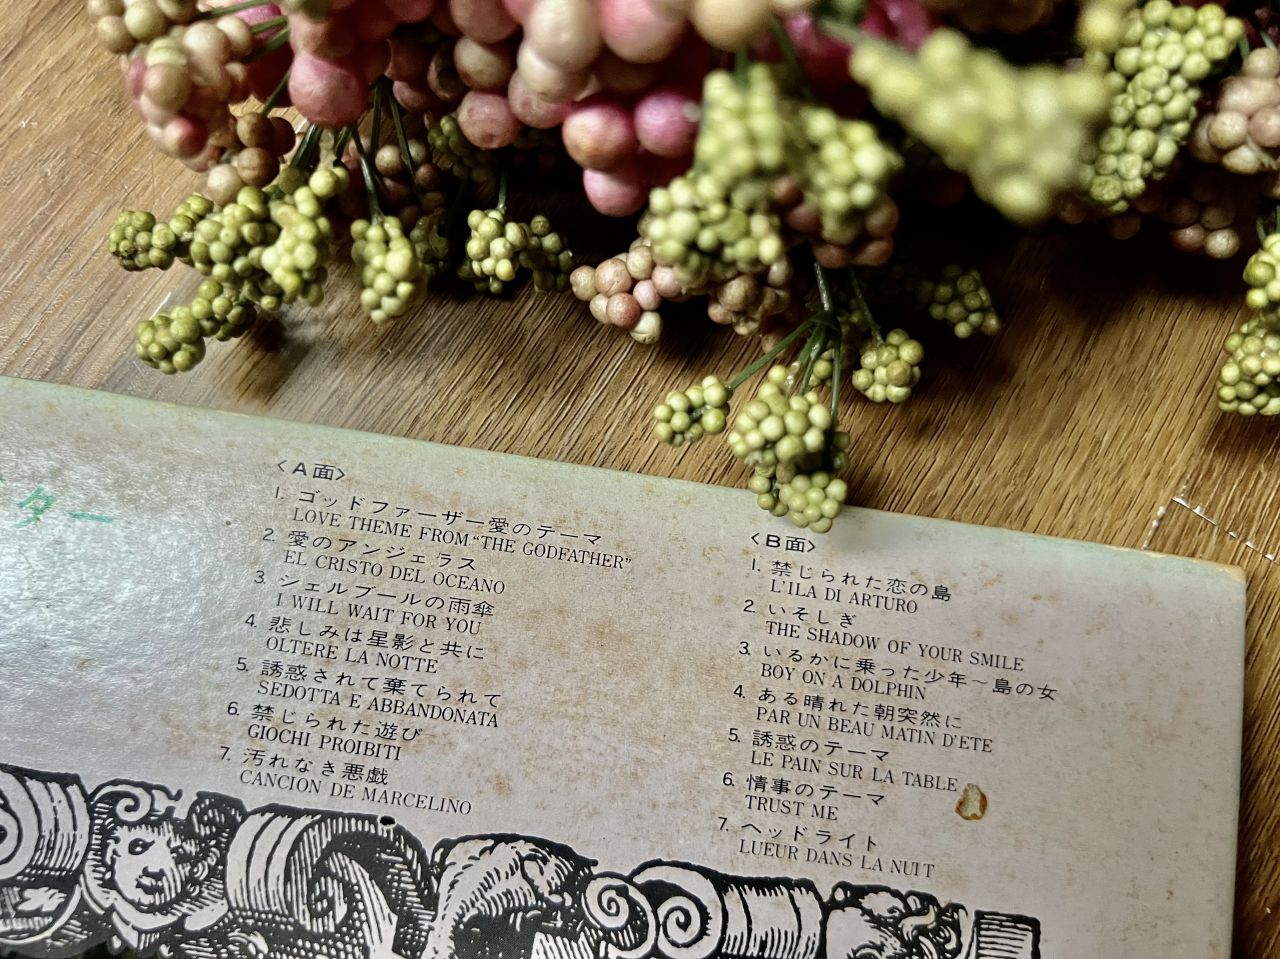 ター
〈A面〉
1. ゴッドファーザー愛のテーマ
LOVE THEME FROM "THE GODFATHER"
2. 愛のアンジェラス
EL CRISTO DEL OCEANO
3. シェルブールの雨傘
I WILL WAIT FOR YOU
4. 悲しみは星影と共に
OLTERE LA NOTTE
5. 誘惑されて棄てられて
SEDOTTA E ABBANDONATA
6. 禁じられた遊び
GIOCHI PROIBITI
7. 汚れなき悪戯
CANCION DE MARCELINO
〈B面〉
1. 禁じられた恋の島
L'ILA DI ARTURO
2. いそしぎ
THE SHADOW OF YOUR SMILE
3. いるかに乗った少年〜島の女
BOY ON A DOLPHIN
4. ある晴れた朝突然に
PAR UN BEAU MATIN D'ETE
5. 誘惑のテーマ
LE PAIN SUR LA TABLE
6. 情事のテーマ
TRUST ME
7. ヘッドライト
LUEUR DANS LA NUIT